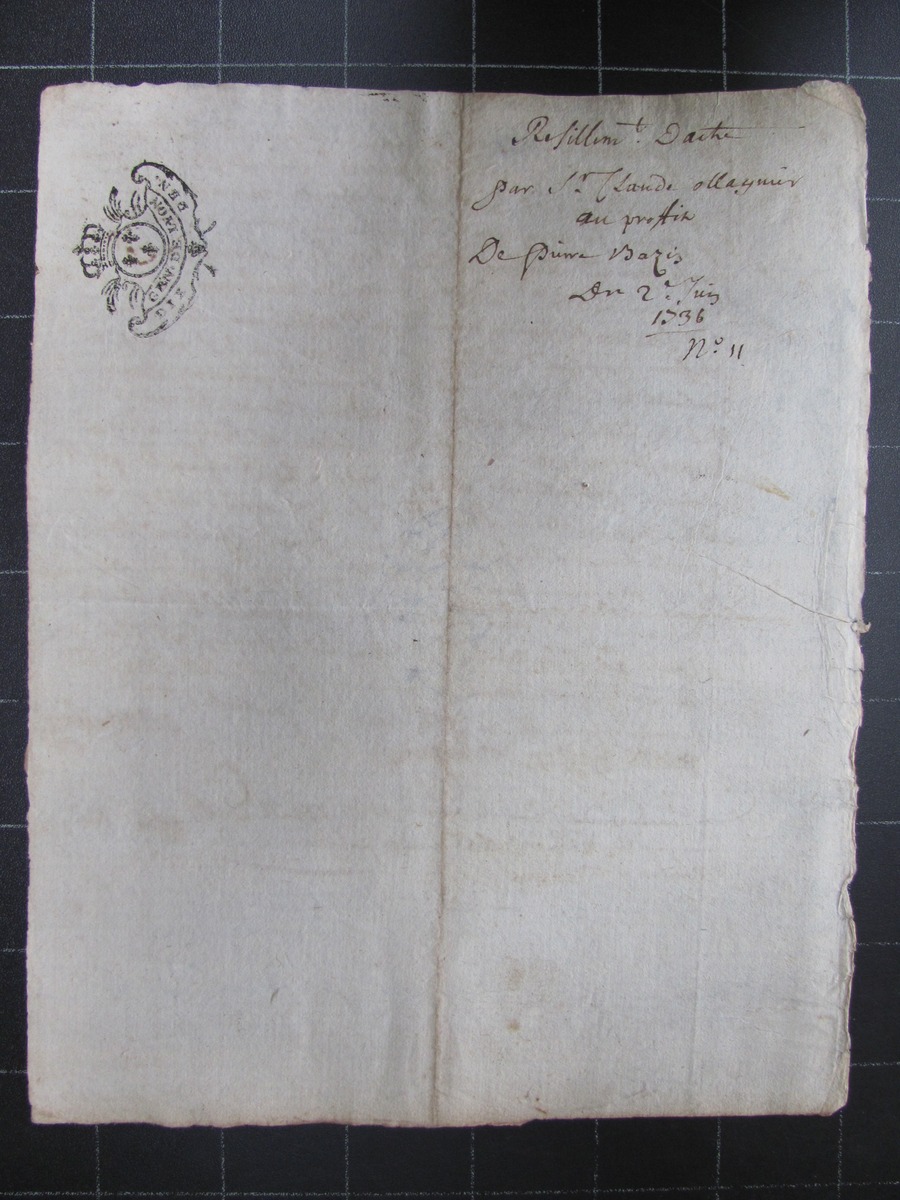 GEN. DE LYON
Resillim.t Dacte
par S.r Claude ollagnier
au proffit
De pierre Bazin
Du 2.e Juin
1736
N.o 11